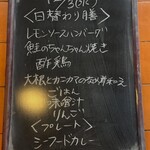 /3(火)
<日替わり膳>
レモンソースハンバーグ
鮭のちゃんちゃん焼き
酢鶏
大根とカニカマの和え
ごはん
味噌汁
りんご
<プレート>
シーフードカレー